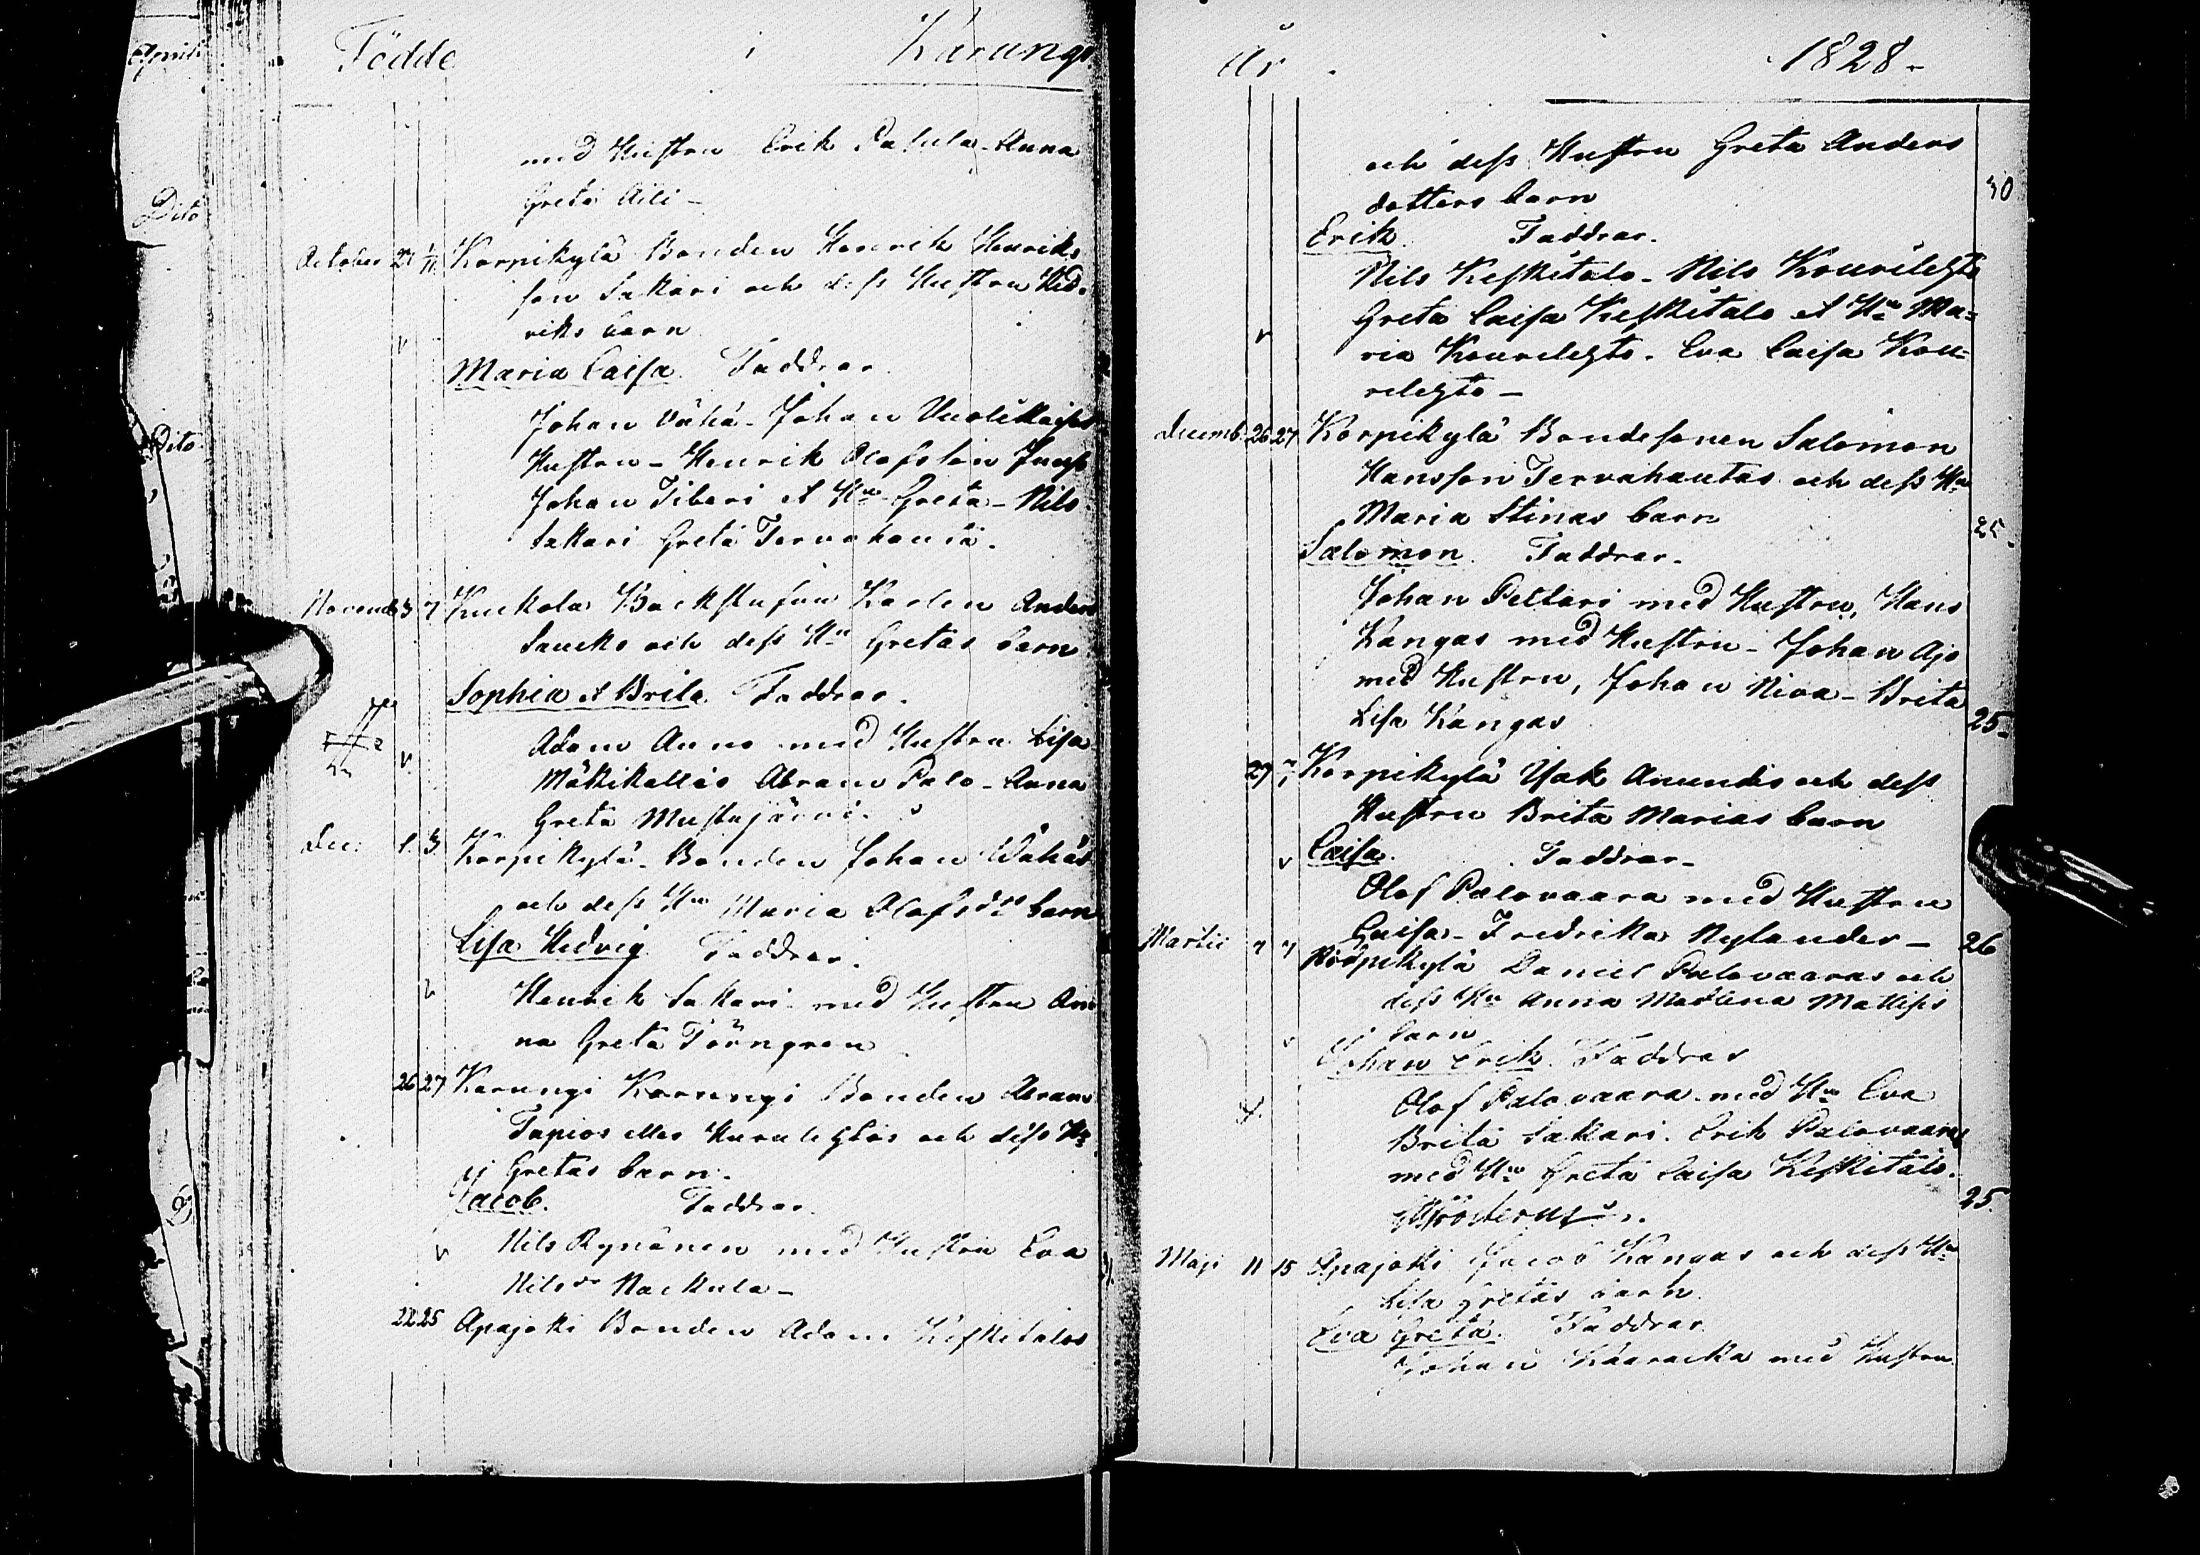 Födde i Karungi
med Hustru Erik Pakula. Anna
Greta Aili –
October 21 1/11 Korpikylä Bonden Henrik Henriks
son Sakari och dess Hustru Hed-
viks barn
Maria Caisa. Faddrar
Johan Vähä – Johan
Hustru – Henrik Olofsson
Johan Tiberi et Hu Greta – Nils
Sakari Greta Tervahauta.
Novemb 3 7 Kuckola Backstufun Karlen Anders
Saucks och dess Hu Gretas barn
Sophia et Brita. Faddrar.
Adam Anno med Hustru Lisa
Mäkikallas Abram Palo – Anna
Greta Mustajärvi.
Dec: 1. 3. Korpikylä – Bonden Johan Wähäs
och dess Hu Maria Olofsdrs barn
Lisa Hedvig Faddrar.
Henrik Sakari med Hustru An
na Greta Törngren
26 27 Karungi Karungi Bonden Abram
Tapios eller och dess Hu
Gretas barn.
Jacob. Faddrar
Nils Rynänen med Hustru Eva
Nilsdr Nackula –
22 25 Apajoki Bonden Adam Keskitalos
År 1828 –
och dess Hustru Greta Anders
dotters barn
30
Erik. Faddrar.
Nils Keskitalo – Nils Kourilehto
Greta Caisa Keskitalo et Hu Ma=
ria Kourilehto. Eva Caisa Kou=
rilehto –
Decemb. 26 27 Korpikylä Bondesonen Salomon
Hansson Tervahautas och dess Hu
Maria Stinas barn
25.
Salomon. Faddrar –
Johan Peltari med Hustru, Hans
Kangas med Hustru – Johan Ajo
med Hustru, Johan Niva – Brita
Lisa Kangas
25 –
29 Korpikylä Isak Anundis och dess
Hustru Brita Marias barn
Caisa. Faddrar –
Olof Palovaara med Hustru
Caisa – Fredrika Nylander –
26
Martii 7 7 Korpikylä Daniel Palovaaras och
dess Hu Anna Madlena Mattiss
barn
Johan Erik. Faddrar
Olof Palovaara med Hu Eva
Brita Sakari. Erik Palovaara
med Hu Greta Caisa Keskitalo.
25.
Maji 11 15 Apajoki Jacob Kangas och dess Hu
Lisa Gretas barn.
Eva Greta. Faddrar
Johan med Hustru